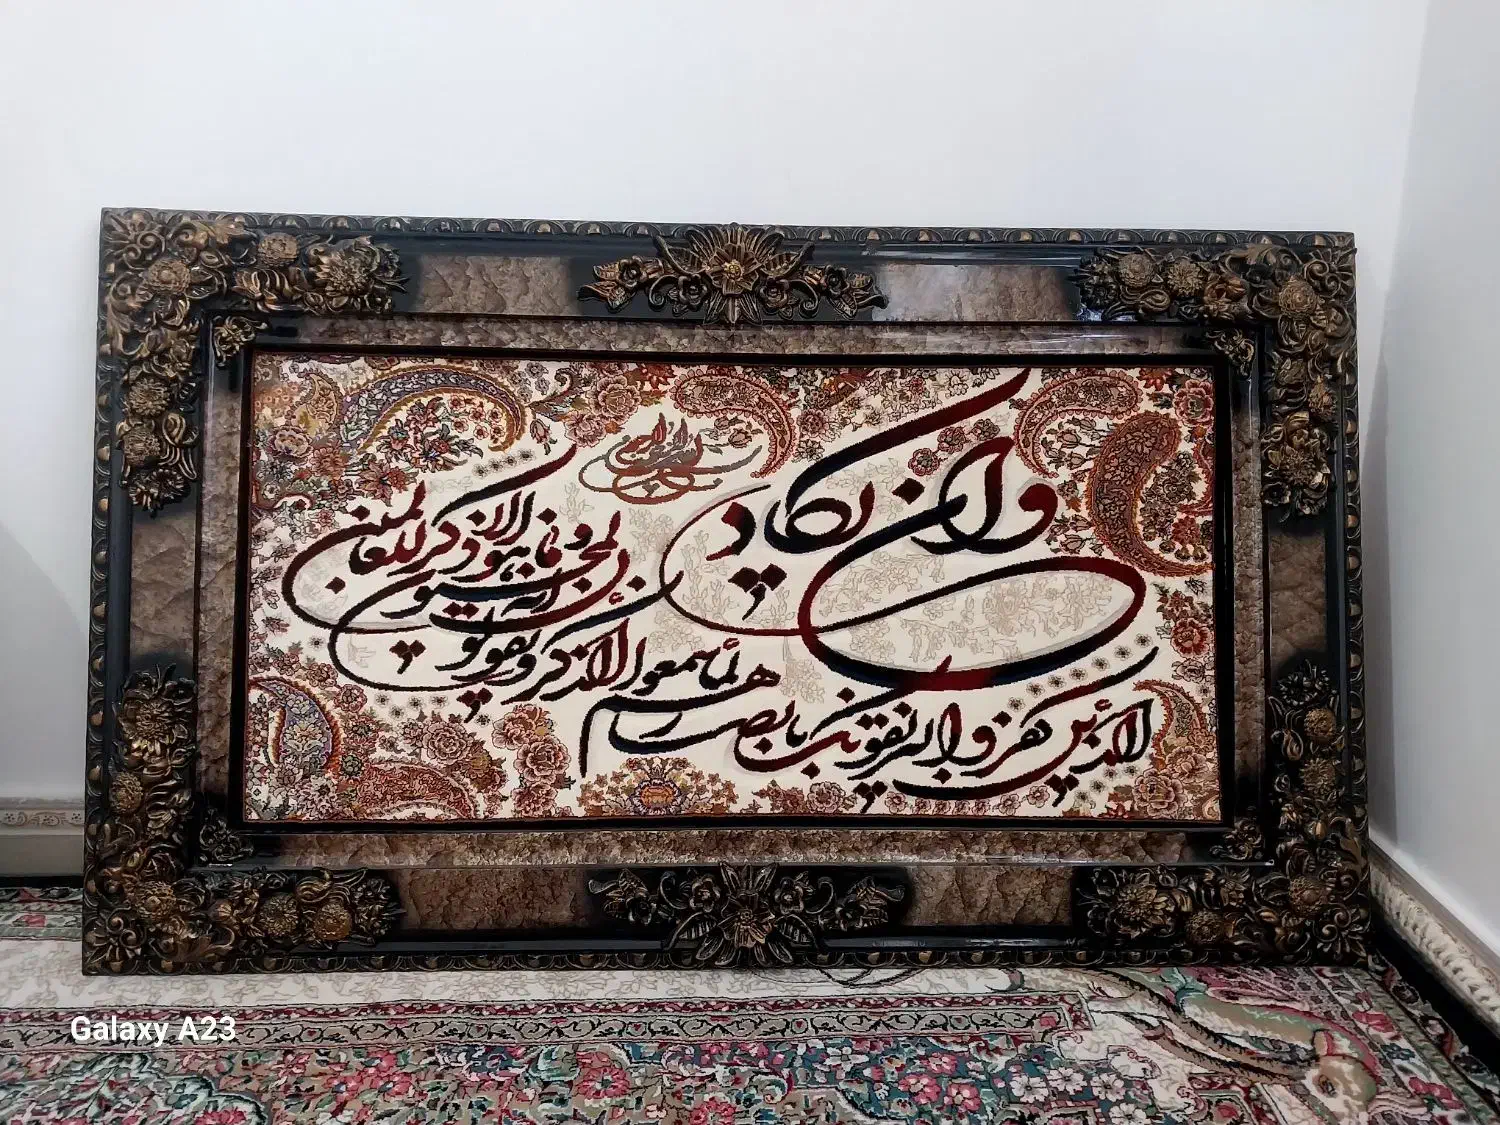 بسم الله الرحمن الرحیم
وان یکاد
الذین کفروا لیزلقونک بابصارهم
لما سمعوا الذکر و یقولون
انه لمجنون
و ما هو الا ذکر للعالمین
Galaxy A23